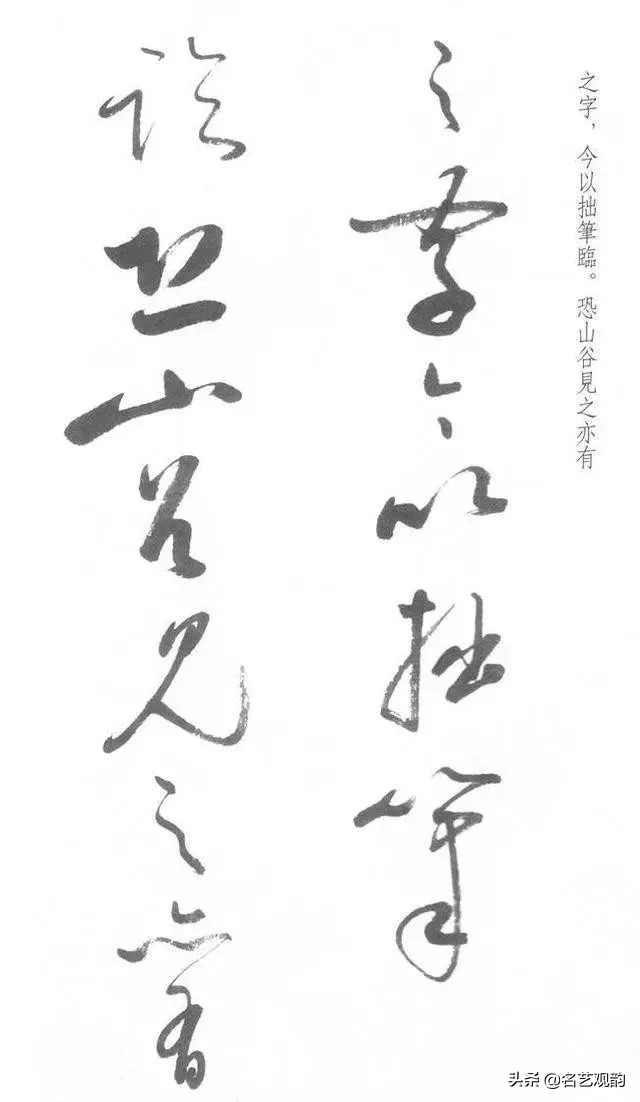 之字，今以拙筆臨。恐山谷見之亦有
之字今以拙筆
臨恐山谷見之亦有
头条 @名艺观韵